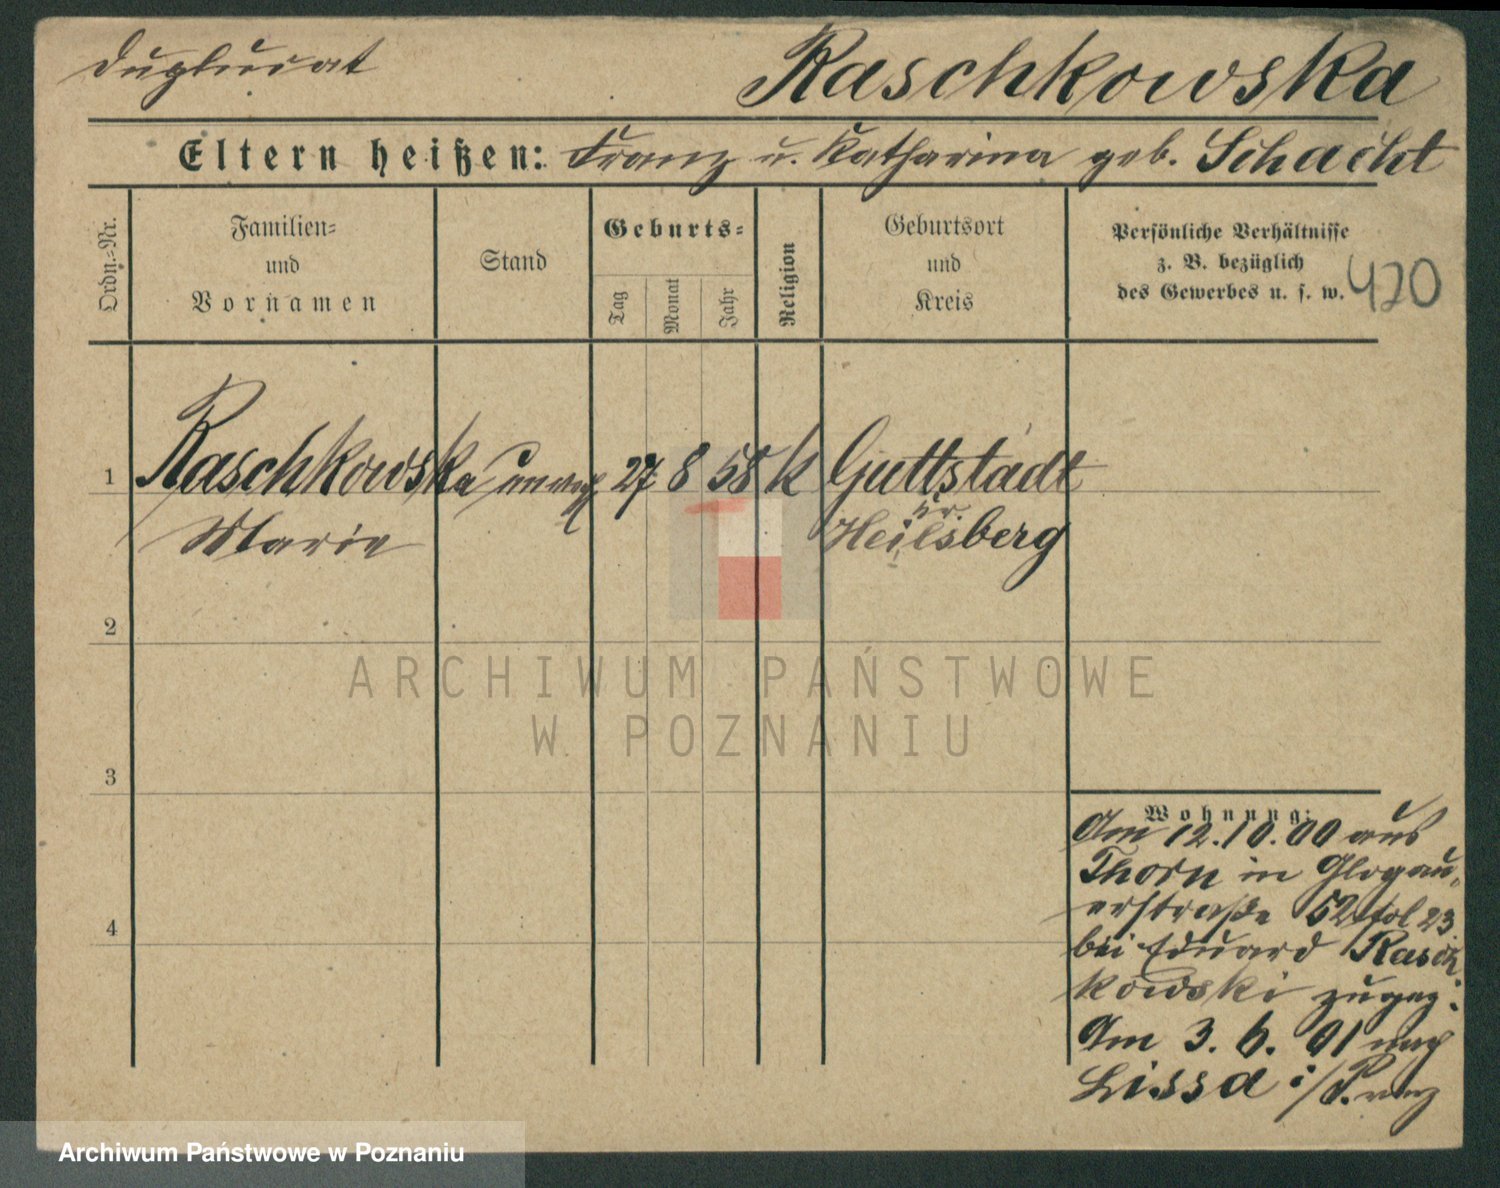 Duplicat
Raschkowska
Eltern heißen: Franz u. Katharina geb. Schacht
Ordn.-Nr.
Familien-
und
Vornamen
Stand
Geburts-
Tag
Monat
Jahr
Religion
Geburtsort
und
Kreis
Persönliche Verhältnisse
z. B. bezüglich
des Gewerbes u. s. w.
420
1 Raschkowska 27 8 58 k Guttstadt
Marie
Kr.
Heilsberg
2
3
4
ARCHIWUM PAŃSTWOWE
W POZNANIU
Wohnung:
Am 12.10.00 aus
Thorn in Glogau-
erstraße 52 fol 23.
bei Eduard Rasch
kowski zugez.
Am 3. 6. 01 nach
Lissa i/P.
Archiwum Państwowe w Poznaniu